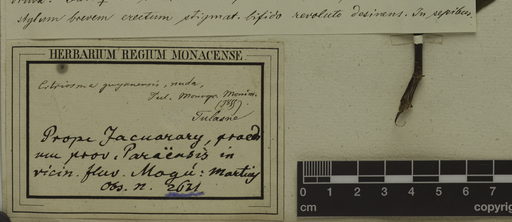 Stylum brevem erectum stigmat. bifido revoluto desinens. In sepibus
HERBARIUM REGIUM MONACENSE.
Citriosma guyanensis, nuda,
Tul. Monogr. Monim.
(1855).
Tulasne
Prope Jacuarary, praed
prov. Paraënsis in
vicin. fluv. Mogú: Martius
Obs. n. 2621
0 1 2 3 4 5 6 7
cm
copyrig